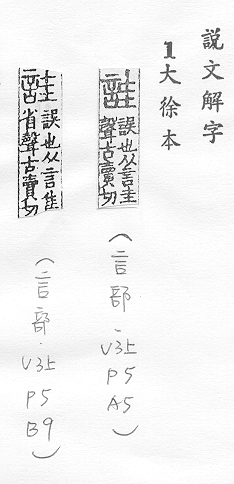 說文解字
1大徐本
詿 誤也从言圭
聲古賣切
(言部.V3上 P5 A5)
詿 誤也从言佳
省聲古賣切
(言部.V3上 P5 B9)